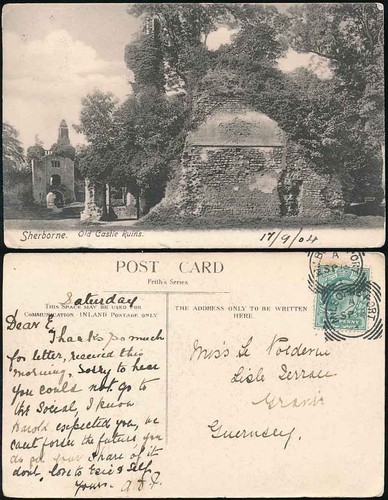 Sherborne. Old Castle Ruins.
17/9/04
POST CARD
Frith's Series
THIS SPACE MAY BE USED FOR
COMMUNICATION INLAND POSTAGE ONLY
THE ADDRESS ONLY TO BE WRITTEN
HERE.
Saturday
Dear E,
Thanks so much
for letter, received this
morning. Sorry to hear
you could not go to
the Social, I know
Harold expected you, we
cant foresee the future, you
do get your share of it
dont, love to Essie & Self
Yours.
Miss L
Lisle Terrace
Guernsey.